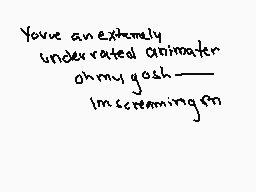 Yorue an extemely
underrated animater
oh my gosh——
Im screaming rn